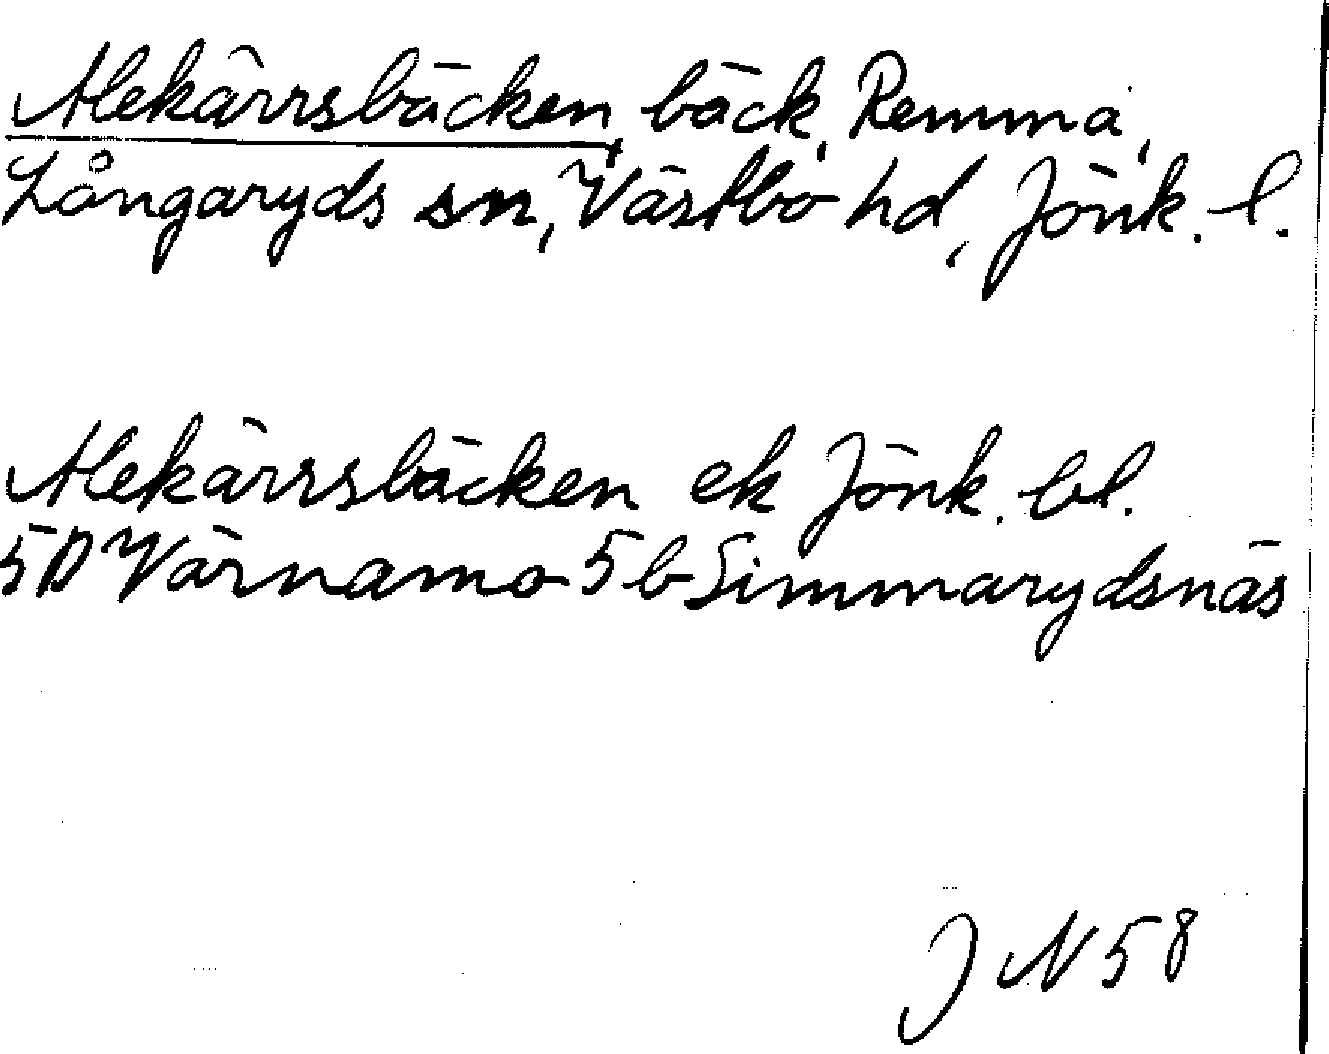 Alekärrsbäcken, bäck, Remma,
Långaryds sn, Västbo hd, Jönk. l.
Alekärrsbäcken ek Jönk. bl.
5D Värnamo 5b Simmarydsnäs
J N 58